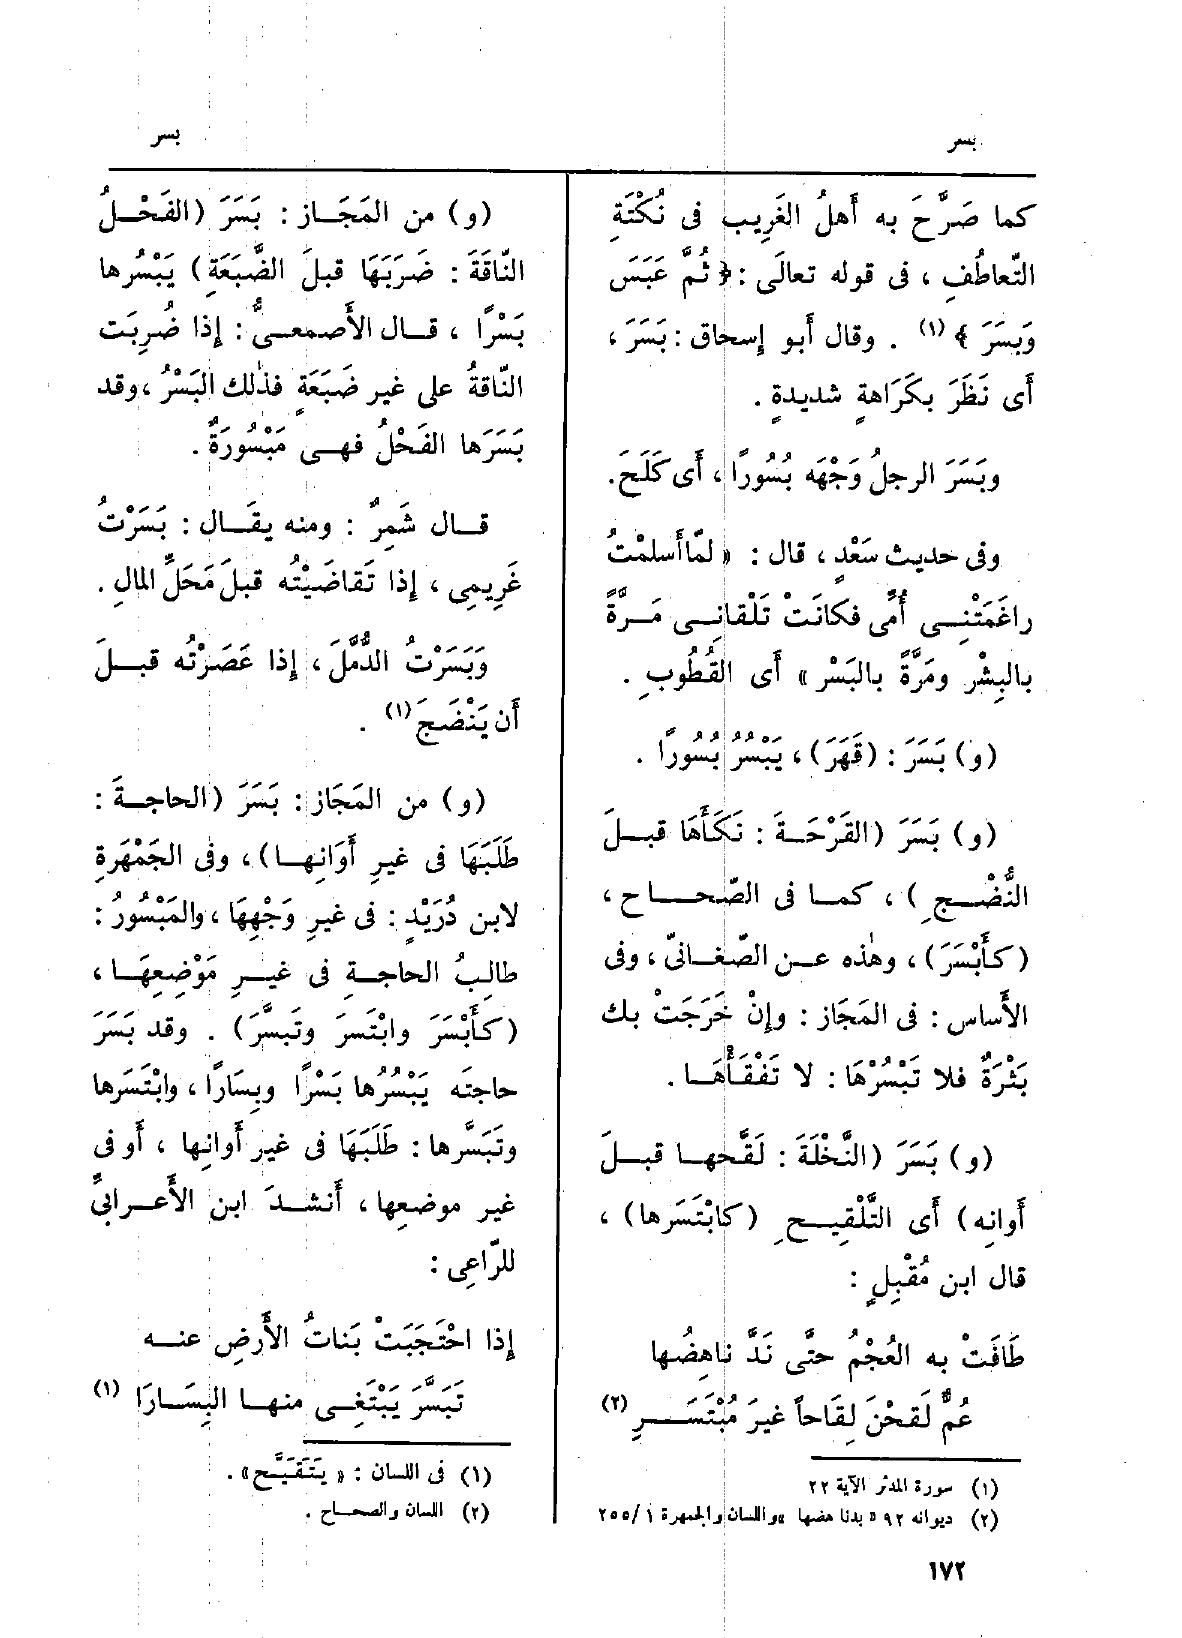 بسر
بسر
كما صَرَّحَ به أَهلُ الغَرِيبِ فى نُكْتَةِ
التّعاطُفِ ، فى قوله تعالَى : ﴿ ثُمَّ عَبَسَ
وَبَسَرَ ﴾ (١) . وقال أَبو إِسحاق : بَسَرَ ،
أَى نَظَرَ بكَرَاهةٍ شديدةٍ .
وبَسَرَ الرجلُ وَجْهَه بُسُورًا ، أَى كَلَحَ.
وفى حديث سَعْدٍ ، قال : « لمّا أَسلمْتُ
راغَمَتْنِى أُمِّى فكانَتْ تَلْقانِى مَرَّةً
بالبِشْر ومَرَّةً بالبَسْر » أَى القُطُوبِ .
(و) بَسَرَ : (قَهَرَ) ، يَبْسُرُ بُسُورًا .
(و) بَسَرَ (القَرْحَةَ : نَكَأَهَا قبلَ
النُّضْجِ ) ، كما فى الصّحاح ،
(كأَبْسَرَ) ، وهٰذه عن الصّغانىّ ، وفى
الأَساس : فى المَجَاز : وإِنْ خَرَجَتْ بك
بَثْرَةٌ فلا تَبْسُرْهَا : لا تَفْقَأْهَا .
(و) بَسَرَ (النَّخْلَةَ : لَقَّحها قبلَ
أَوانِه) أَى التَّلْقِيحِ (كابْتَسَرها) ،
قال ابن مُقْبِلٍ :
طَافَتْ به العُجْمُ حتَّى نَدَّ ناهِضُها
عُمٌّ لَقحْنَ لِقَاحاً غيرَ مُبْتَسَرِ (٢)
(١) سورة المدثر الآية ٢٢
(٢) ديوانه ٩٢ « بدنا هضها » واللسان والجمهرة ١/ ٢٥٥
(و) من المَجَاز : بَسَرَ (الفَحْلُ
النّاقَةَ : ضَرَبَهَا قبلَ الضَّبَعَةِ) يَبْسُرها
بَسْرًا ، قال الأَصمعىُّ : إِذا ضُرِبَت
النّاقةُ على غير ضَبَعَةٍ فذٰلك البَسْرُ ، وقد
بَسَرَها الفَحْلُ فهى مَبْسُورَةٌ .
قال شَمِرٌ : ومنه يقَال : بَسَرْتُ
غَرِيمِى ، إِذا تَقاضَيْتُه قبلَ مَحَلِّ المالِ .
وَبَسَرْتُ الدُّمَّلَ ، إِذا عَصَرْتُه قبلَ
أَن يَنْضَجَ (١) .
(و) من المَجَاز : بَسَرَ (الحاجةَ :
طَلَبَهَا فى غيرِ أَوَانِها) ، وفى الجَمْهَرةِ
لابن دُرَيْدٍ : فى غيرِ وَجْهِهَا ، والمَبْسُورُ :
طالِبُ الحاجةِ فى غيرِ مَوْضِعِهَا ،
(كأَبْسَرَ وابْتَسرَ وتَبسَّرَ) . وقد بَسَرَ
حاجتَه يَبْسُرُها بَسْرًا وبِسَارًا ، وابْتَسَرها
وتَبَسَّرها : طَلَبَهَا فى غير أَوانِها ، أَو فى
غير موضعِها ، أَنشدَ ابن الأَعرابىِّ
للرّاعِى :
إِذا احْتَجَبَتْ بَناتُ الأَرضِ عنه
تَبَسَّرَ يَبْتَغِى منها البِسَارَا (١)
(١) فى اللسان : « يَتَقَيَّح » .
(٢) اللسان والصحاح .
١٧٢